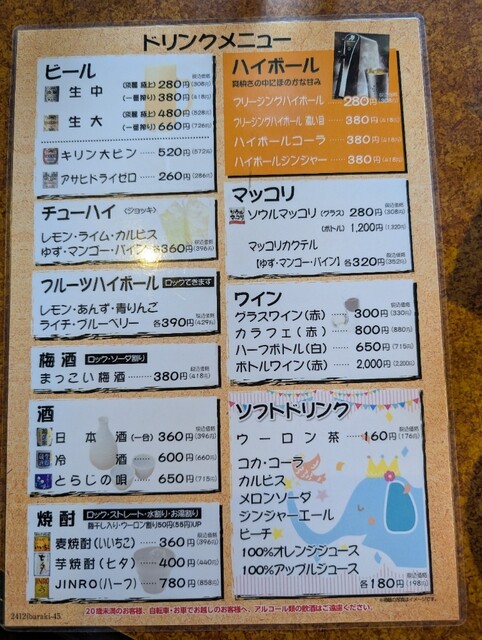 ドリンクメニュー
ビール
税込価格
生中 (淡麗 極上) 280円 (308円)
(一番搾り) 380円 (418円)
生大 (淡麗 極上) 480円 (528円)
(一番搾り) 660円 (726円)
キリン大ビン …… 520円 (572円)
アサヒドライゼロ …… 260円 (286円)
チューハイ 〈ジョッキ〉
レモン・ライム・カルピス
税込価格
ゆず・マンゴー・パイン 各360円 (396円)
フルーツハイボール ロックできます
レモン・あんず・青りんご
税込価格
ライチ・ブルーベリー 各390円 (429円)
梅酒 ロック・ソーダ割り
税込価格
まっこい梅酒 …… 380円 (418円)
酒
税込価格
日本酒 (一合) 360円 (396円)
冷酒 600円 (660円)
とらじの唄 …… 650円 (715円)
焼酎 ロック・ストレート・水割り・お湯割り
梅干し入り・ウーロン割り50円(55円)UP
税込価格
麦焼酎(いいちこ) 360円 (396円)
芋焼酎(ヒタ) 400円 (440円)
JINRO(ハーフ) 780円 (858円)
ハイボール
税込価格
フリージングハイボール …… 280円 (308円)
フリージングハイボール 濃い目 …… 380円 (418円)
ハイボールコーラ …… 380円 (418円)
ハイボールジンジャー …… 380円 (418円)
マッコリ
税込価格
ソウルマッコリ (グラス) 280円 (308円)
(ボトル) 1,200円 (1,320円)
マッコリカクテル
税込価格
【ゆず・マンゴー・パイン】 各320円 (352円)
ワイン
税込価格
グラスワイン(赤) …… 300円 (330円)
カラフェ(赤) …… 800円 (880円)
ハーフボトル(白) …… 650円 (715円)
ボトルワイン(赤) …… 2,000円 (2,200円)
ソフトドリンク
税込価格
ウーロン茶 …… 160円 (176円)
コカ・コーラ
カルピス
メロンソーダ
ジンジャーエール
ピーチ
100%オレンジジュース
100%アップルジュース
税込価格
各180円 (198円)
※写真、画像はイメージです。
20歳未満のお客様、自転車・お車でお越しのお客様へ、アルコール類の飲酒はご遠慮ください。
2412ibaraki-45